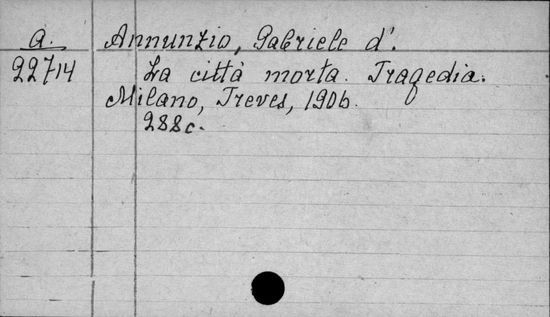 a. Annunzio, Gabriele d'.
22714 La città morta. Tragedia.
Milano, Treves, 1906.
288c.